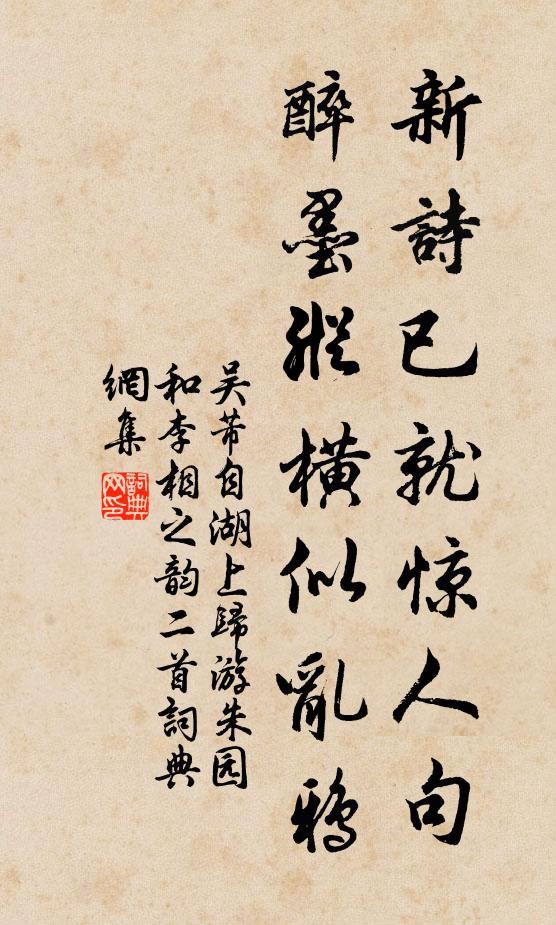 新詩已就惊人句
醉墨縱橫似亂鴉
吴芾自湖上歸游朱园
和李相之韵二首詞典
網集
詞典
网印